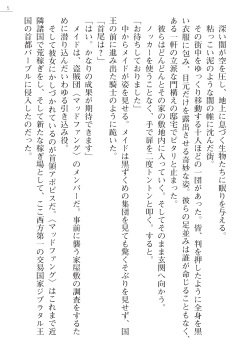 5
深い闇が空を圧し、地上に息づく生物たちに眠りを与える。
粘っこい泥のような闇の中に沈んだ街並み。
その街中をゆっくり移動する十人ほどの一団があった。皆、判を押したように全身を黒
い衣服に包み、目元だけを露出させる奇妙な姿。彼らの足並みは誰が命じることもなく、
ある一軒の立派な門構えの邸宅でピタリと止まった。
彼らはどんどんとその家の敷地内に入っていく。そしてそのまま玄関へ向かう。
ノッカーを使うことなく、手で扉を二度トントンと叩く。すると、
「お待ちしておりました」
中からメイドが姿を見せる。メイドは黒ずくめの集団を見ても驚くそぶりを見せず、国
王の前に進み出た騎士のように跪いた。
「首尾は？」
「はい、かなりの成果が期待できます」
メイドは、盗賊団〈マッドファング〉のメンバーだ。事前に襲う家屋敷の調査をするた
めに潜り込んだいわゆる引き込み役。
そして彼女にかしづかれているのが首領アボビスだ。〈マッドファング〉はこれまで近
隣諸国で荒稼ぎをし、そして新たな稼ぎ場として、ここ西方第一の交易国家ジブラタル王
国の首都パブールに侵入したのだった。